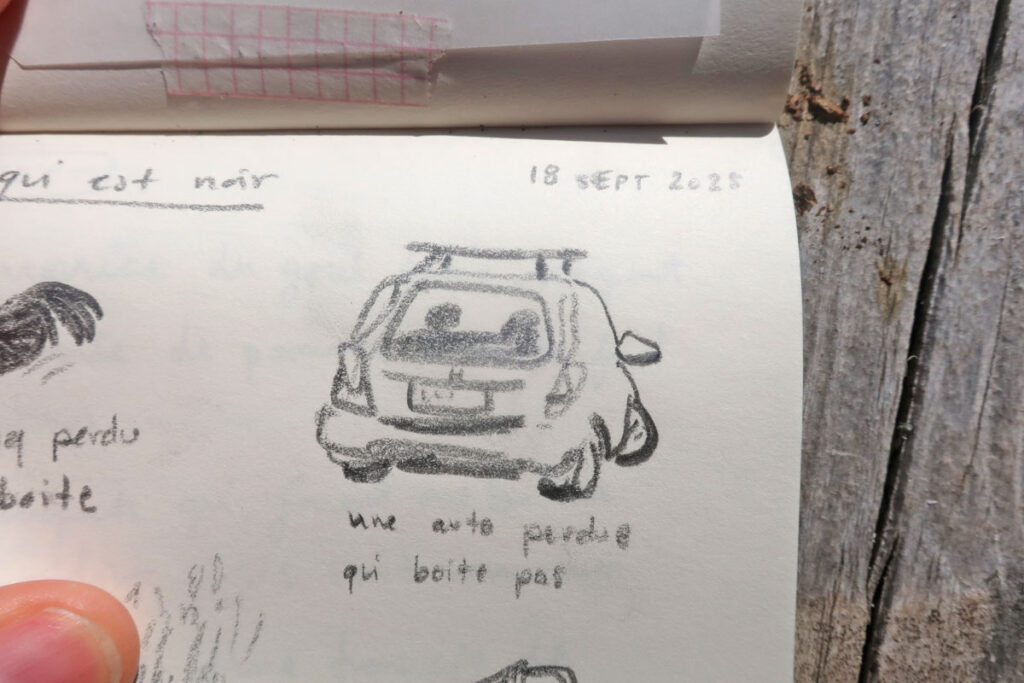 qui est noir
18 SEPT 2025
perdu
boite
une auto perdue
qui boite pas